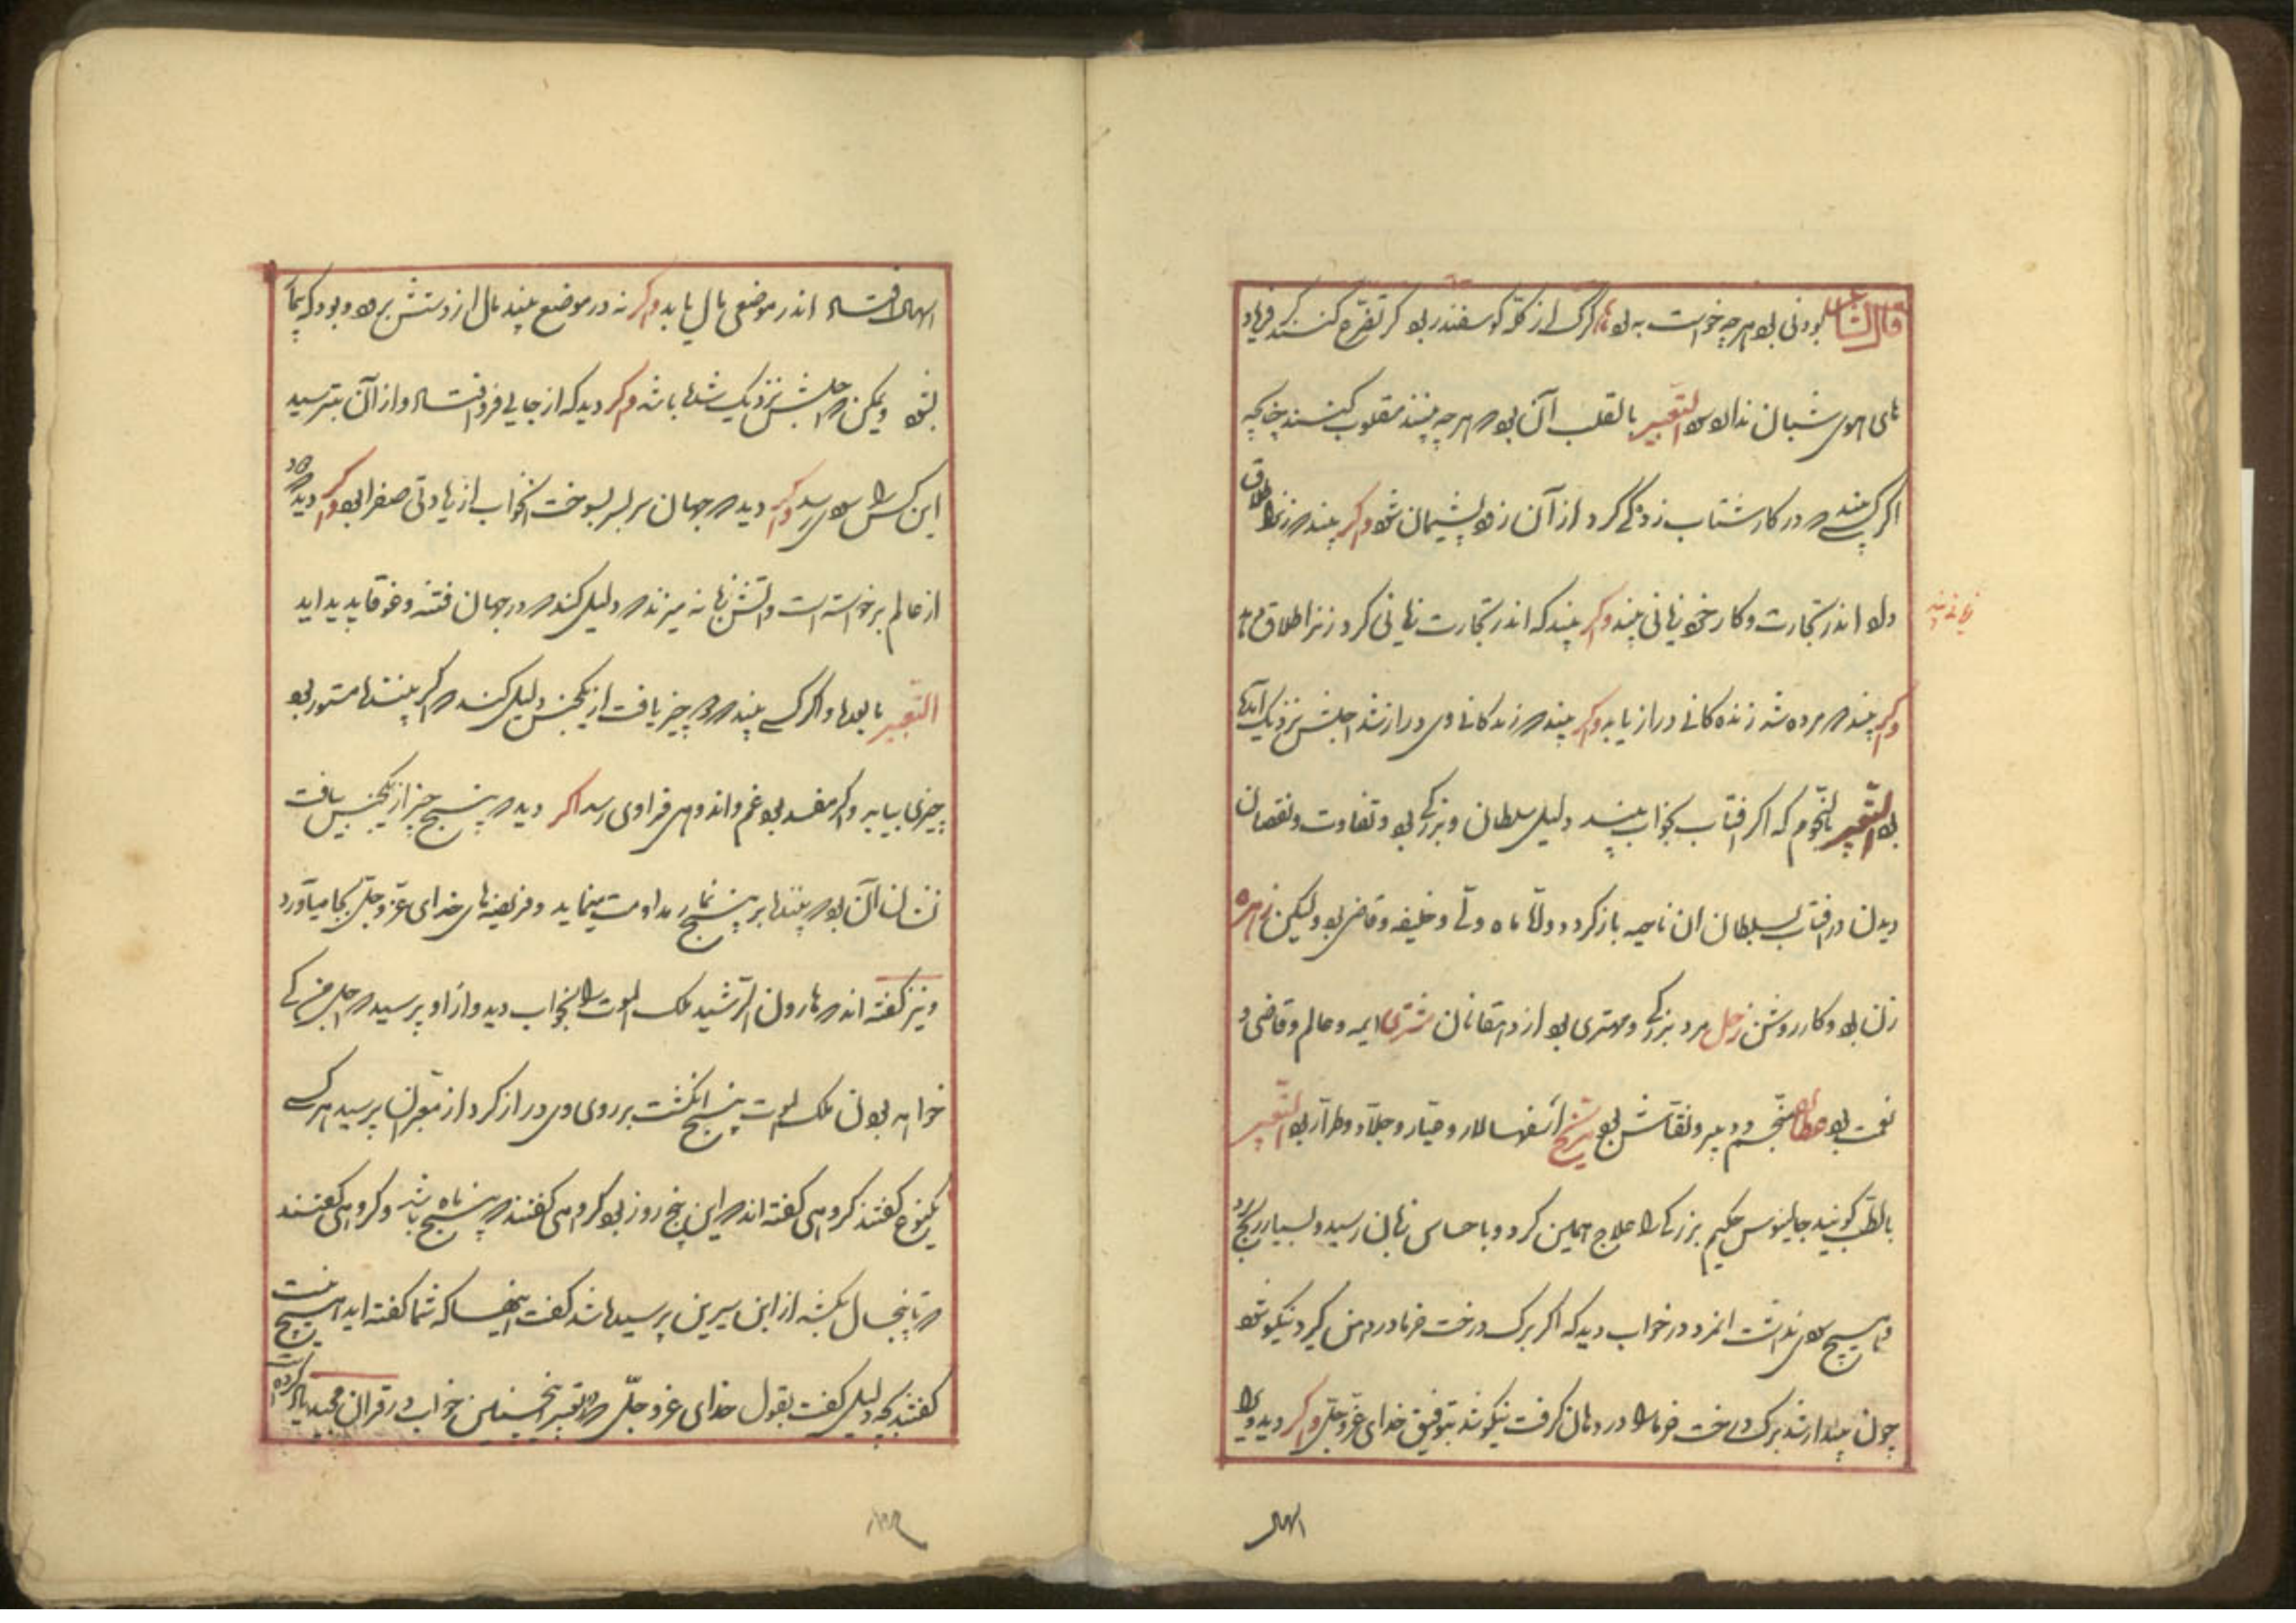 قال الشاعر بودنی بود هرچه خواست به بود تا گرگ از گله گوسفند ربود گر تضرع کنند گر فریاد
های هوی شبان ندارد سود التعبیر بالقلب آن بود که هرچه بینند مقلوب کنند چنانچه
اگر کسی بیند که در کار شتاب زدگی کرد از آن زود پشیمان شود و اگر بیند که زنرا طلاق
داد اندر تجارت و کار خود زیانی بیند و اگر بیند که اندر تجارت زیانی کرد زنرا طلاق دهد
و اگر بیند که مرده شد زنده کانی دراز یابد و اگر بیند که زندکانی وی دراز شد اجلش نزدیک آمده
بود التعبیر بالنجوم که اگر افتاب بخواب بیند دلیل سلطان و بزرگی بود و تفاوت و نقصان
دیدن در افتاب بسلطان ان ناحیه باز گردد و ماه ولی و خلیفه و قاضی بود ولیکن زهره
زن بود و کار روشن زحل مرد بزرگ و مهتری بود از دهقانان مشتری ایمه و عالم و قاضی و
نعمت بود عطارد منجم و دبیر و نقاش بود مریخ اسفهسالار و عیار و جلاد و طرار بود التعبیر
بالطب گویند جالینوس حکیم بزرگی را علاج همی کرد و با حساس زبان رسید و بسیار رنج برد
هیچ سود نداشت انمرد در خواب دید که اگر برک درخت خرما در دهن گیرد نیکو شود
چون بیدار شد برک درخت خرما را در دهان گرفت نیکو شد بتوفیق خدای عز و جل و اگر دید ویرا
زیانی بیند
اندر موضعی مال یابد و اگر نه در موضع بیند مال از دستش برود و بود که پیاده
شود و یمکن که اجلش نزدیک شده باشد و اگر دید که از جایی فرو افتاد و از آن بترسید
این کس را سود رسد و اگر دید که جهان سربسر بسوخت انخواب از زیادتی صفرا بود و اگر دید که دود
از عالم برخواسته است و اتش زبانه میزند دلیل کند که در جهان فتنه و غوغا پدید اید
التعبیر بالعدد و اگر کسی بیند که دو چیز یافت از یکجنس دلیل کند که اگر بیننده مستور بود
چیزی بیابد و اگر مفسد بود غم و اندوهی فرا وی رسد اگر دید که پنج چیز از یکجنس یافت
نشان آن بود که بیننده بر پنج نماز مداومت مینماید و فریضه های خدای عز و جل بجا میاورد
و نیز گفته اند که هارون الرشید ملک الموت را بخواب دید و از او پرسید که اجل من کی
خواهد بودن ملک الموت پنج انگشت بر روی وی دراز کرد از معبران پرسید هر کسی
یکنوع گفتند گروهی گفته اند که این پنج روز بود گروهی گفتند که پنج ماه باشد و گروهی گفتند
که تا پنجسال بکشد از ابن سیرین پرسیده شد گفت اینها که شما گفته اید هیچ نیست
گفتند بچه دلیل گفت بقول خدای عز و جل که تعبیر اینچنین خواب در قران مجید یاد کرده است